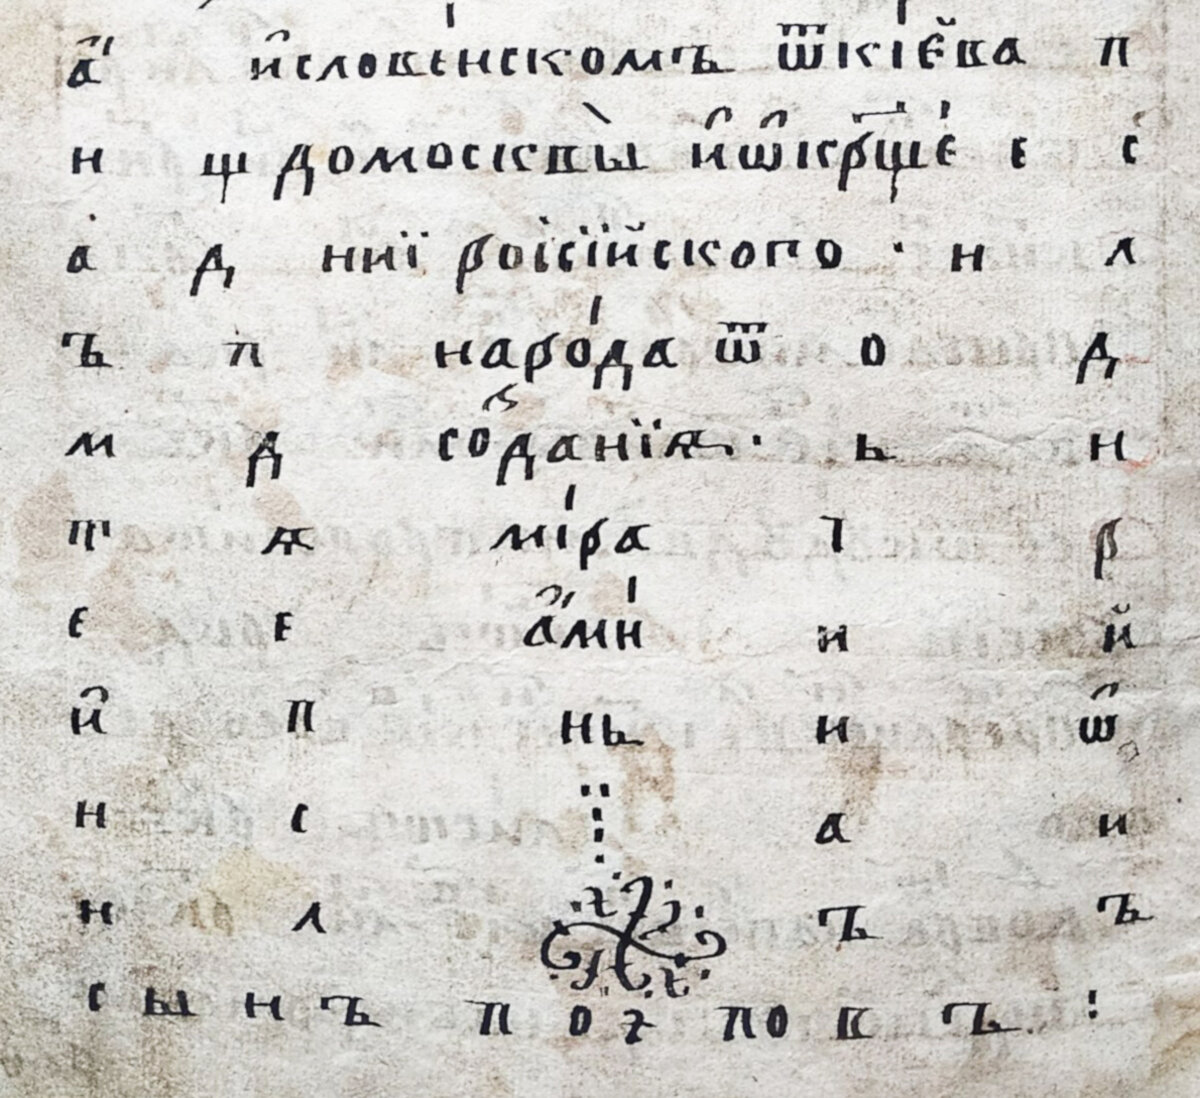 а҆́ и҆слове́нскомъ ѿкі́е҆ва п
н щ домосквы̀ и҆ѡ҆кр҃ще́ е с
а д ниї роісїйского · н л
ъ п наро́да ѿ о д
м д соз̾данїѧ · ь н
т ѧ мі́ра ї р
е е а҆́мн́ и й
и҆ п нь и ѡ҆
н с а и
н л ъ ъ
с ы н ъ п о г п о п ъ :